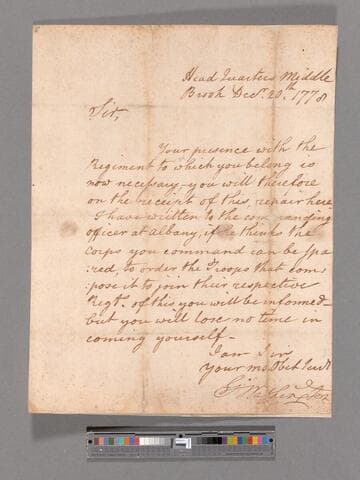 Head Quarters Middle
Brook Decr. 20th. 1778
Sir,
Your presence with the
Regiment to which you belong is
now necessary, you will therefore
on the receipt of this, repair here
I have written to the commanding
officer at albany, if he thinks the
Corps you command can be spa
:red, to order the Troops that com
:pose it to join their respective
Regts. of this you will be informed—
but you will lose no time in
coming yourself—
I am Sir
Your mo Obet Servt
Go Washington